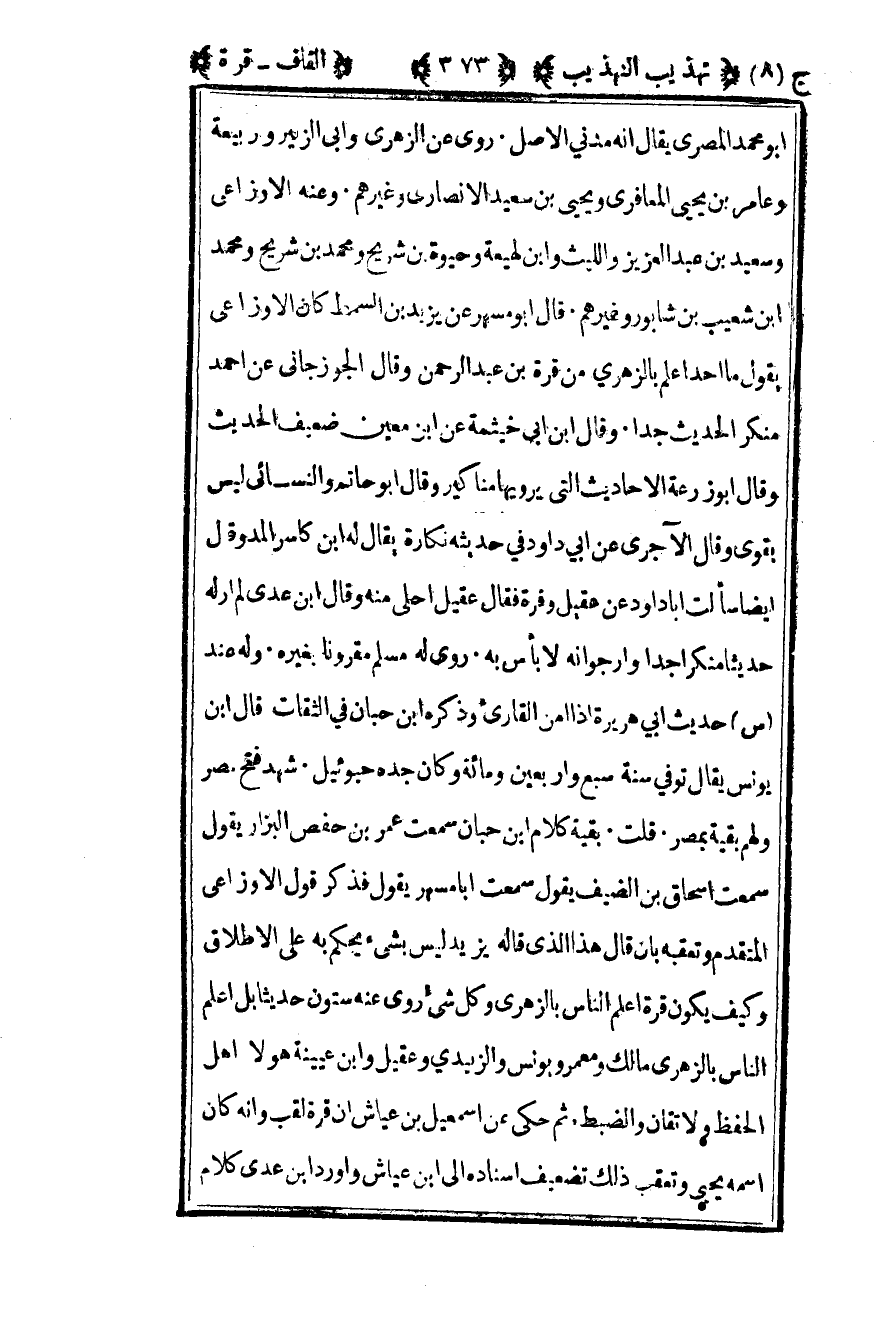 ج (٨) ﴿ تهذيب التهذيب ﴾ ﴿ ٣٧٣ ﴾ ﴿ القاف - قرة ﴾
ابو محمد المصرى يقال انه مدني الاصل ٠ روى عن الزهرى وابى الزبير وربيعة
وعامر بن يحيى المعافرى ويحيى بن سعيد الانصارى وغيرهم ٠ وعنه الاوزاعى
وسعيد بن عبد العزيز والليث وابن لهيعة وحيوة بن شريح ومحمد بن شريح ومحمد
ابن شعيب بن شابور وغيرهم ٠ قال ابو مسهر عن يزيد بن السمط كان الاوزاعى
يقول ما احد اعلم بالزهري من قرة بن عبد الرحمن وقال الجوزجانى عن احمد
منكر الحديث جدا ٠ وقال ابن ابي خيثمة عن ابن معين ضعيف الحديث
وقال ابو زرعة الاحاديث التى يرويها مناكير وقال ابو حاتم والنسائى ليس
بقوى وقال الآجرى عن ابي داود في حديثه نكارة يقال له ابن كاسر المد وقال
ايضا سألت ابا داود عن عقيل وقرة فقال عقيل احلى منه وقال ابن عدى لم ار له
حديثا منكرا جدا وارجو انه لا بأس به ٠ روى له مسلم مقرونا بغيره ٠ وله عند
(س) حديث ابي هريرة اذا امن القارئ وذكره ابن حبان في الثقات قال ابن
يونس يقال توفي سنة سبع واربعين ومائة وكان جده حيوئيل ٠ شهد فتح مصر
ولهم بقية بمصر ٠ قلت ٠ بقية كلام ابن حبان سمعت عمر بن حفص البزار يقول
سمعت اسحاق بن الضيف يقول سمعت ابا مسهر يقول فذكر قول الاوزاعى
المتقدم وتعقبه بان قال هذا الذى قاله يزيد ليس بشىء يحكم به على الاطلاق
وكيف يكون قرة اعلم الناس بالزهرى وكل شئ روى عنه ستون حديثا بل اعلم
الناس بالزهرى مالك ومعمر ويونس والزبيدي وعقيل وابن عيينة هولا اهل
الحفظ ولاتقان والضبط ٠ ثم حكى عن اسمعيل بن عياش ان قرة لقب وانه كان
اسمه يحيى وتعقب ذلك تضعيف اسناده الى ابن عياش واورد ابن عدى كلام